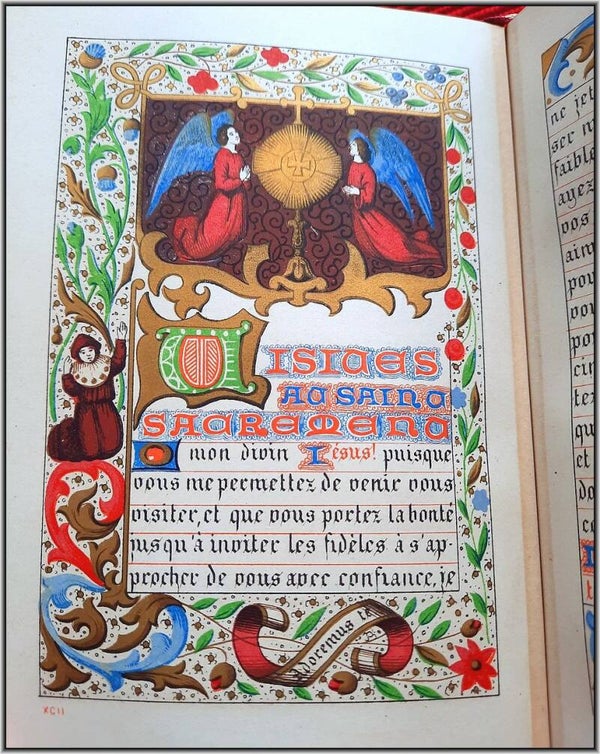 VISITES
AU SAINT
SACREMENT
O mon divin Jésus! puisque
vous me permettez de venir vous
visiter, et que vous portez la bonté
jusqu'à inviter les fidèles à s'ap-
procher de vous avec confiance, je
adoremus te
XCII
ne jet
ser m
faible
ayez
vous
aim
pou
vou
pou
cin
tez
qu
et
do
ce